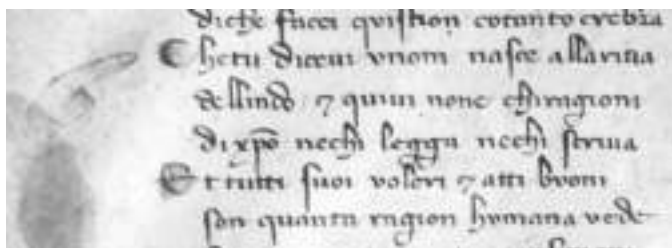 diche facei quistion cotanto crebra
Chetu diceui vnom nasce allariua
dellindo ⁊ quiui none chiragioni
di xp̄o nechi legga nechi scriua
Et tutti suoi voleri ⁊ atti bvoni
son quanta ragion hvmana vede